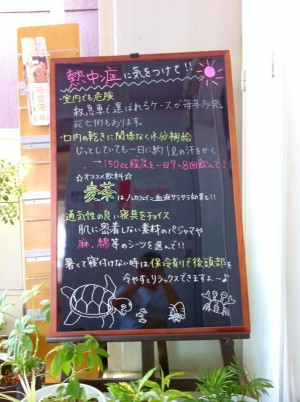 熱中症に気をつけて!!
・室内でも危険
救急車で運ばれるケースが毎年多発。
死亡例もあります。
・口内の乾きに関係なく水分補給
じっとしていても一日に約1ℓの汗をかく
→150cc程度を一日7~8回飲んで!
☆オススメ飲料☆
麦茶はノンカフェイン血液サラサラ効果も!!
通気性の良い寝具をチョイス
肌に密着しない素材のパジャマや
麻、綿等のシーツを選んで!!
暑くて寝付けない時は保冷剤で後頭部を
冷やすとリラックスできますよ~♪